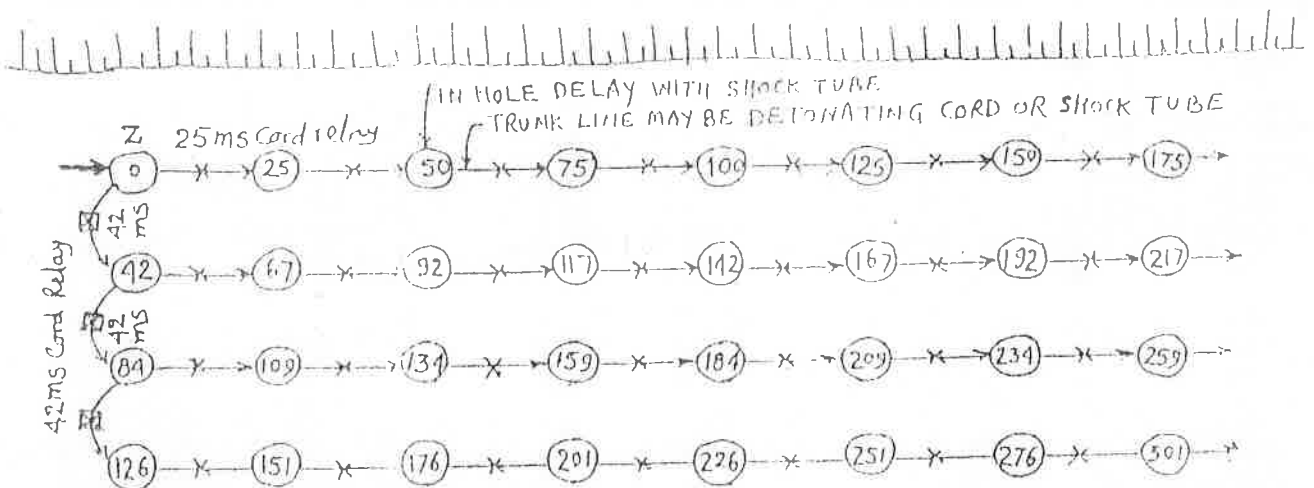 IN HOLE DELAY WITH SHOCK TUBE
TRUNK LINE MAY BE DETONATING CORD OR SHOCK TUBE
Z 25ms Cord relay
0 25 50 75 100 125 150 175
42 ms
42 67 92 117 142 167 192 217
42 ms
42ms Cord Relay
84 109 134 159 184 209 234 259
126 151 176 201 226 251 276 301